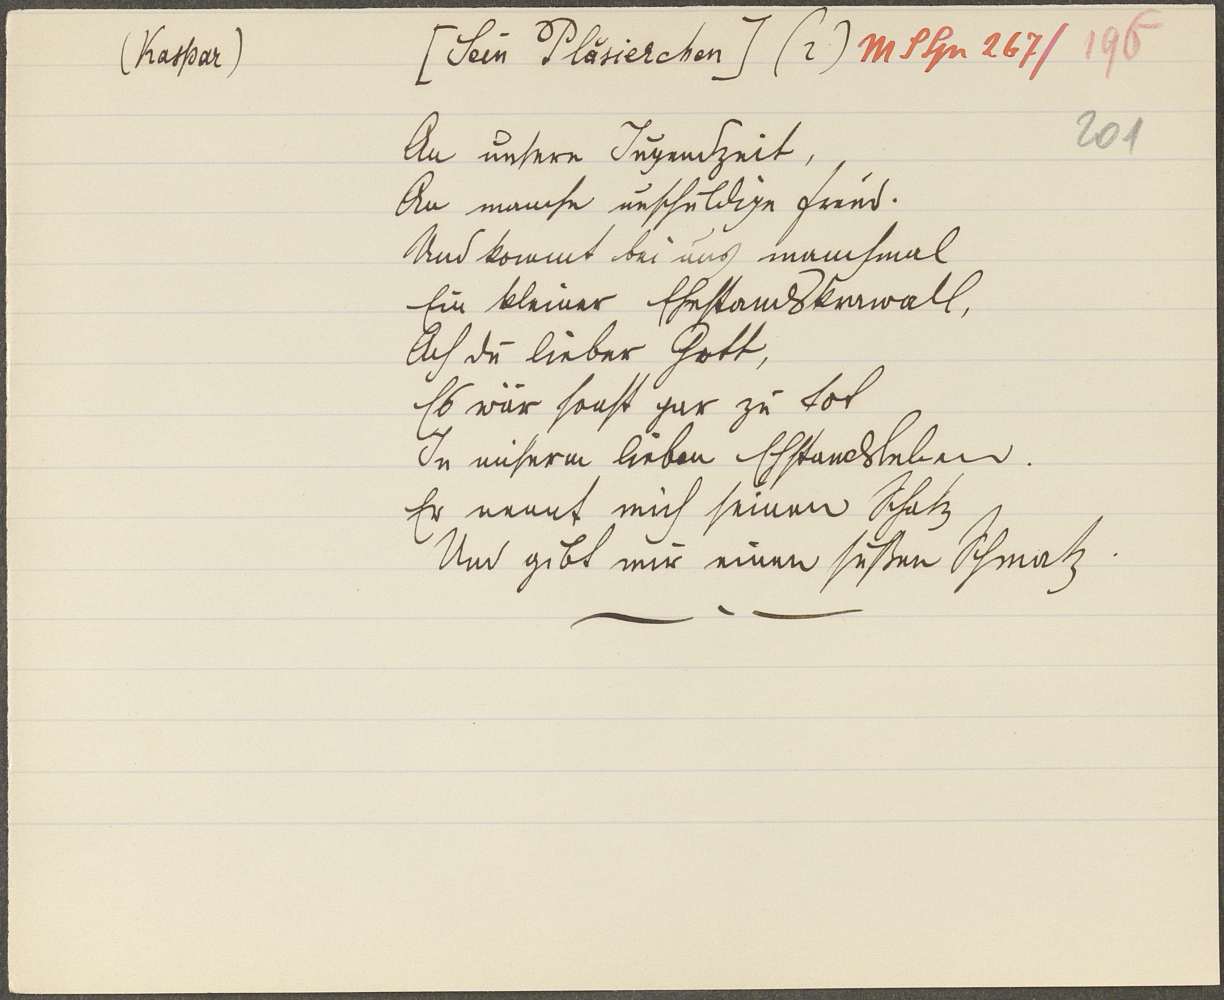 (Kaspar) [Sein Pläsierchen] (2) M S Gn 267/ 196
201
An unsere Jugendzeit,
An manche unschuldige Freud.
Und kommt bei uns manchmal
Ein kleiner Ehestandskrawall,
Ach du lieber Gott,
Es wär sonst gar zu tot
In unserm lieben Ehstandsleben.
Er nennt mich seinen Schatz
Und gibt mir einen süßen Schmatz.